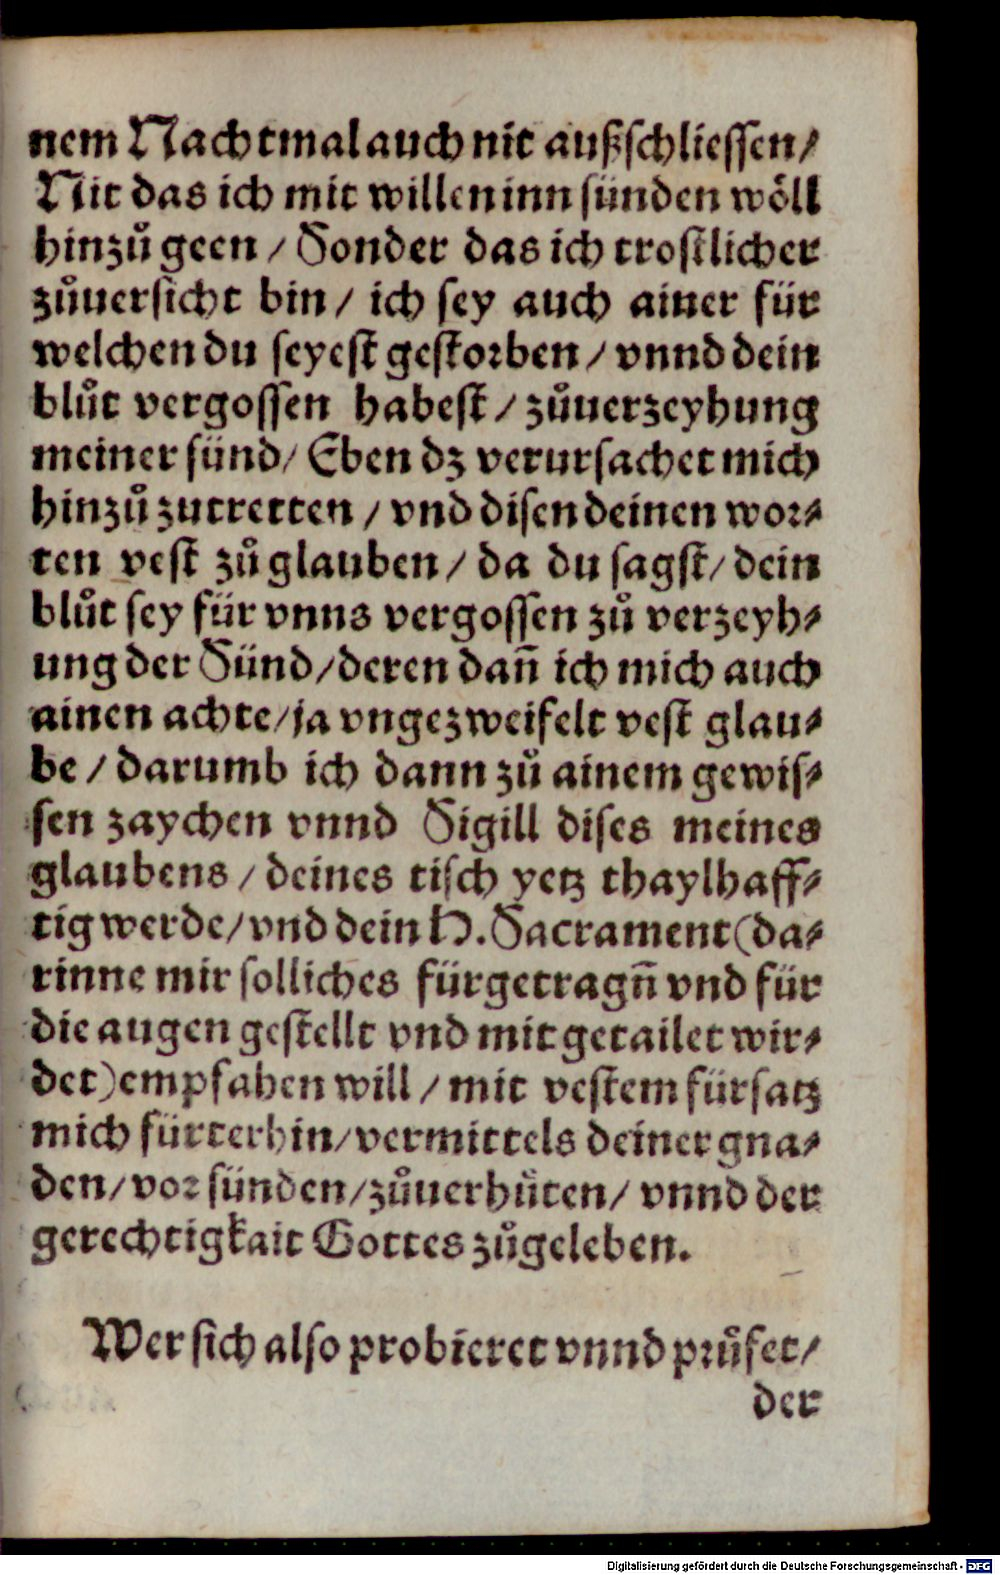 nem Nachtmal auch nit außschliessen/
Nit das ich mit willen inn sünden wöll
hinzů geen / Sonder das ich trostlicher
zůuersicht bin / ich sey auch ainer für
welchen du seyest gestorben / vnnd dein
blůt vergossen habest / zůuerzeyhung
meiner sünd/ Eben dz verursachet mich
hinzů zutretten / vnd disen deinen wor⸗
ten vest zů glauben / da du sagst/ dein
blůt sey für vnns vergossen zů verzeyh⸗
ung der Sünd/deren dañ ich mich auch
ainen achte/ja vngezweifelt vest glau⸗
be / darumb ich dann zů ainem gewis⸗
sen zaychen vnnd Sigill dises meines
glaubens / deines tisch yetz thaylhaff⸗
tig werde/vnd dein H. Sacrament (da⸗
rinne mir solliches fürgetragñ vnd für
die augen gestellt vnd mit getailet wir⸗
det) empfahen will / mit vestem fürsatz
mich fürterhin/vermittels deiner gna⸗
den/vor sünden/zůuerhüten/ vnnd der
gerechtigkait Gottes zůgeleben.
Wer sich also probieret vnnd průfet/
der
Digitalisierung gefördert durch die Deutsche Forschungsgemeinschaft - DFG